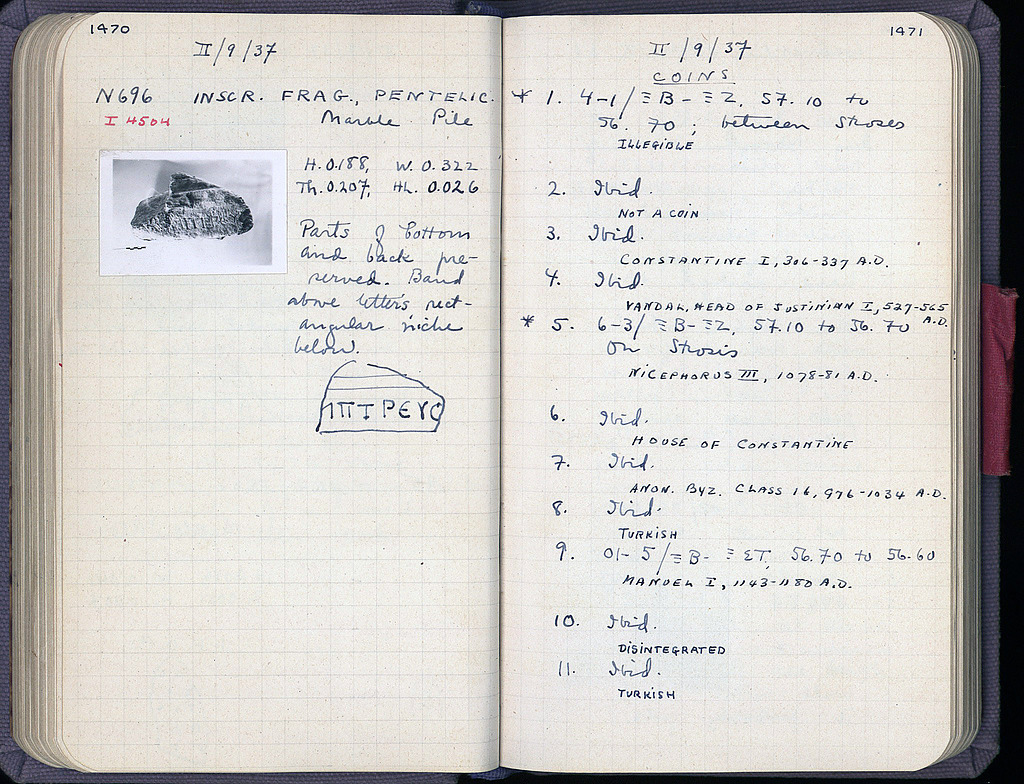 1470
II/9/37
N696 INSCR. FRAG., PENTELIC.
I 4504 Marble Pile
H. 0.188, W. 0.322
Th. 0.207, Hl. 0.026
Parts of bottom
and back pre-
served. Band
above letters rect-
angular niche
below.
ΠΙΡΕΥC
1471
II/9/37
COINS
* 1. 4-1/ΞB-ΞZ, 57.10 to
56.70; between Stroses
ILLEGIBLE
2. Ibid.
NOT A COIN
3. Ibid.
CONSTANTINE I, 306-337 A.D.
4. Ibid.
VANDAL, HEAD OF JUSTINIAN I, 527-565 A.D.
* 5. 6-3/ΞB-ΞZ, 57.10 to 56.70
On Strosis
NICEPHORUS III, 1078-81 A.D.
6. Ibid.
HOUSE OF CONSTANTINE
7. Ibid.
ANON. BYZ. CLASS 16, 976-1034 A.D.
8. Ibid.
TURKISH
9. 01-5/ΞB-ΞΣΤ, 56.70 to 56.60
MANUEL I, 1143-1180 A.D.
10. Ibid.
DISINTEGRATED
11. Ibid.
TURKISH